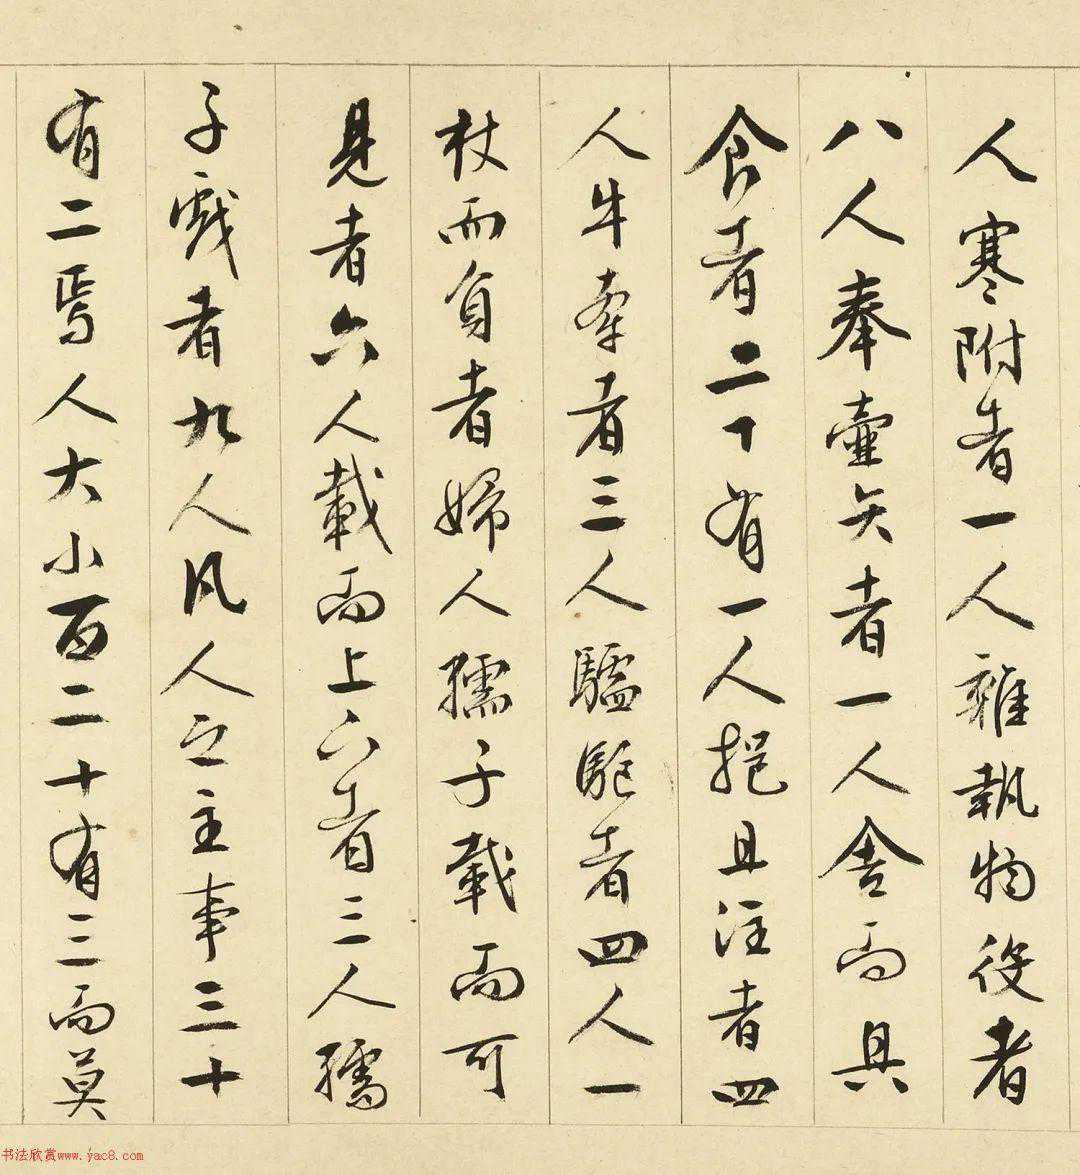 人寒附者一人雜執物役者
八人奉壺矢者一人舍而具
食者二十有一人挹且注者四
人牛牽者三人驢駈者四人一
杖而負者婦人孺子載而可
見者六人載而上下者三人孺
子戲者九人凡人之主事三十
有二焉人大小百二十有三而莫
书法欣赏www.yac8.com